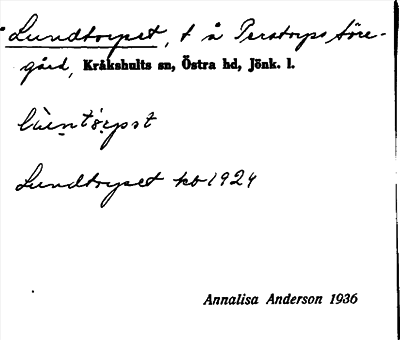 Lundtorpet, t å Perstorps Söre-
gård, Kråkshults sn, Östra hd, Jönk. l.
Lundtorpet kb 1924
Annalisa Anderson 1936